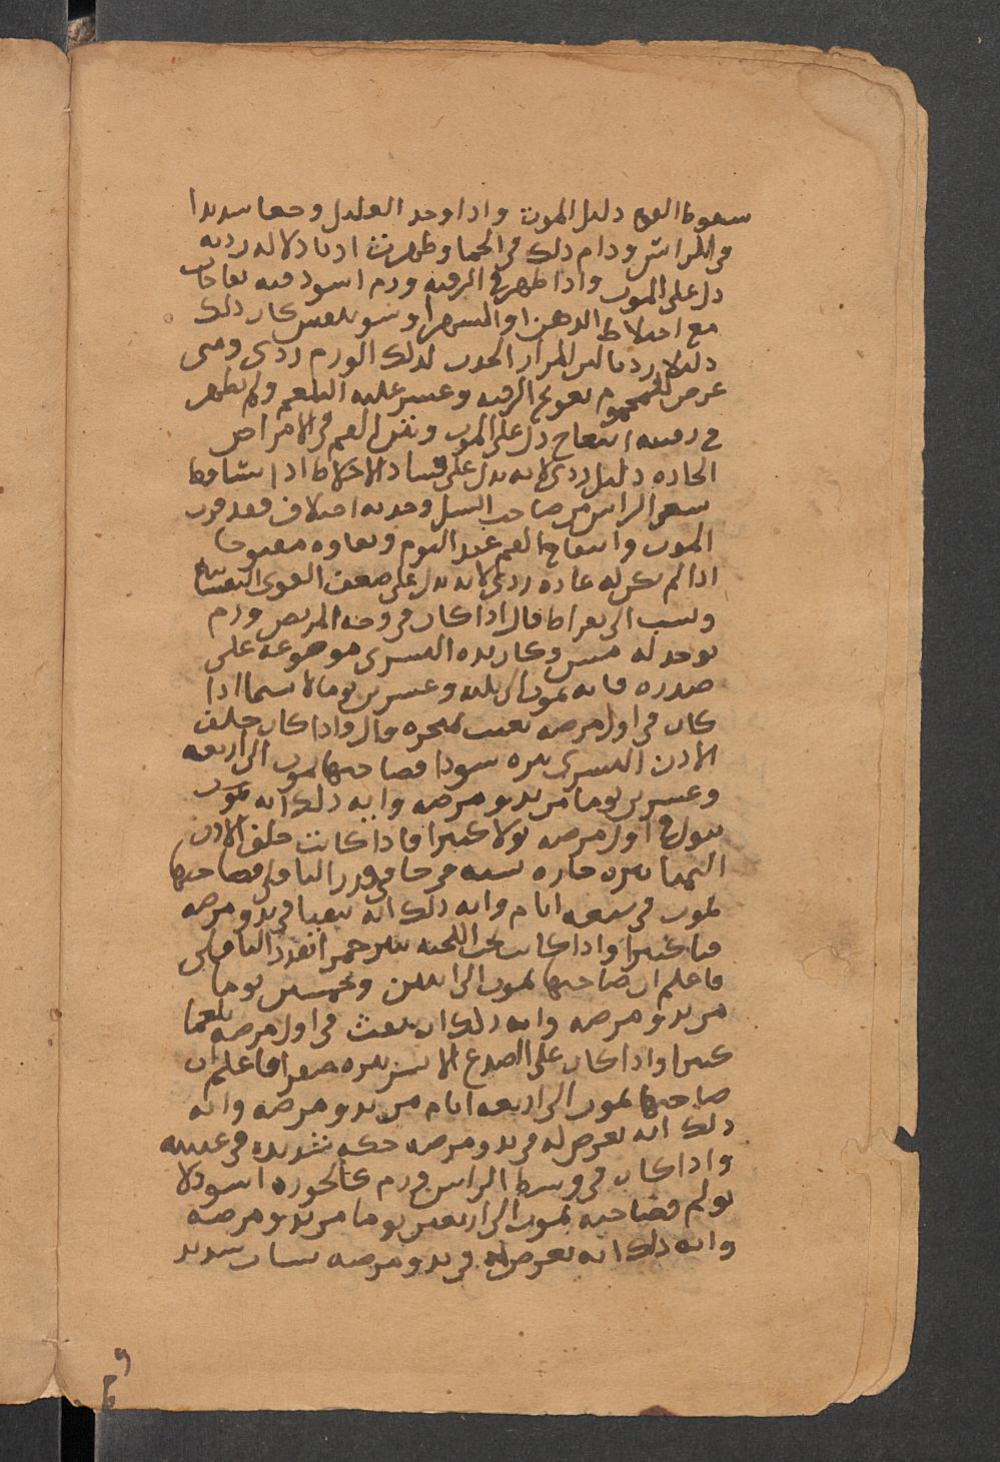 سقوط القوه دليل الموت واذا وجد العليل وجعا شديدا
في الراس ودام ذلك في الحما وظهرت ادنا دلاله رديه
دل على الموت واذا ظهر في الرقبه ورم اسود فيه نفاخات
مع اختلاط الذهن او السهر او سو نفس كان ذلك
دليلا رديا لان المرار لذلك الورم ردى ومتى
عرض للمحموم تعويج الرقبه وعسر عليه البلع ولم يظهر
في رقبته انتفاخ دل على الموت ونتن الفم في الامراض
الحاده دليل ردى لانه يدل على فساد الاخلاط اذا تساقط
شعر الراس من صاحب السل وحدث به اختلاف فقد قرب
الموت وانفتاح الفم عند النوم وبقاوه مفتوحا
اذا لم يكن له عاده ردى لانه يدل على ضعف القوى النفسانيه
ونسب الى بقراط قال اذا كان في وجه المريض ورم
يوجد له مس وكان يده اليسرى موضوعه على
صدره فانه يموت الى ثلثه وعشرين يوما لا سيما اذا
كان في اول مرضه يعبث بمنخره قال واذا كان خلف
الاذن اليسرى بثره سودا فصاحبها يموت الى اربعه
وعشرين يوما من بدو مرضه وايه ذلك انه
يبول في اول مرضه بولا كثيرا فاذا كانت خلف الاذن
اليمنا بثره حاره في قدر الباقلى فصاحبها
يموت في سبعه ايام وايه ذلك انه يتقيا في بدو مرضه
قيا كثيرا واذا كانت تحت اللحيه بثر حمرا بقدر الباقلى
فاعلم ان صاحبها يموت الى اثنين وخمسين يوما
من بدو مرضه وايه ذلك ان ينفث في اول مرضه بلغما
كثيرا واذا كان على الصدغ الايسر بثره صفرا فاعلم ان
صاحبها يموت الى اربعه ايام من بدو مرضه وايه
ذلك انه يعرض له في بدو مرضه حكه شديده في عينيه
واذا كان في وسط الراس ورم كالجوزه اسود لا
يولم فصاحبه يموت الى اربعين يوما من بدو مرضه
وايه ذلك انه يعرض له في بدو مرضه سبات شديد